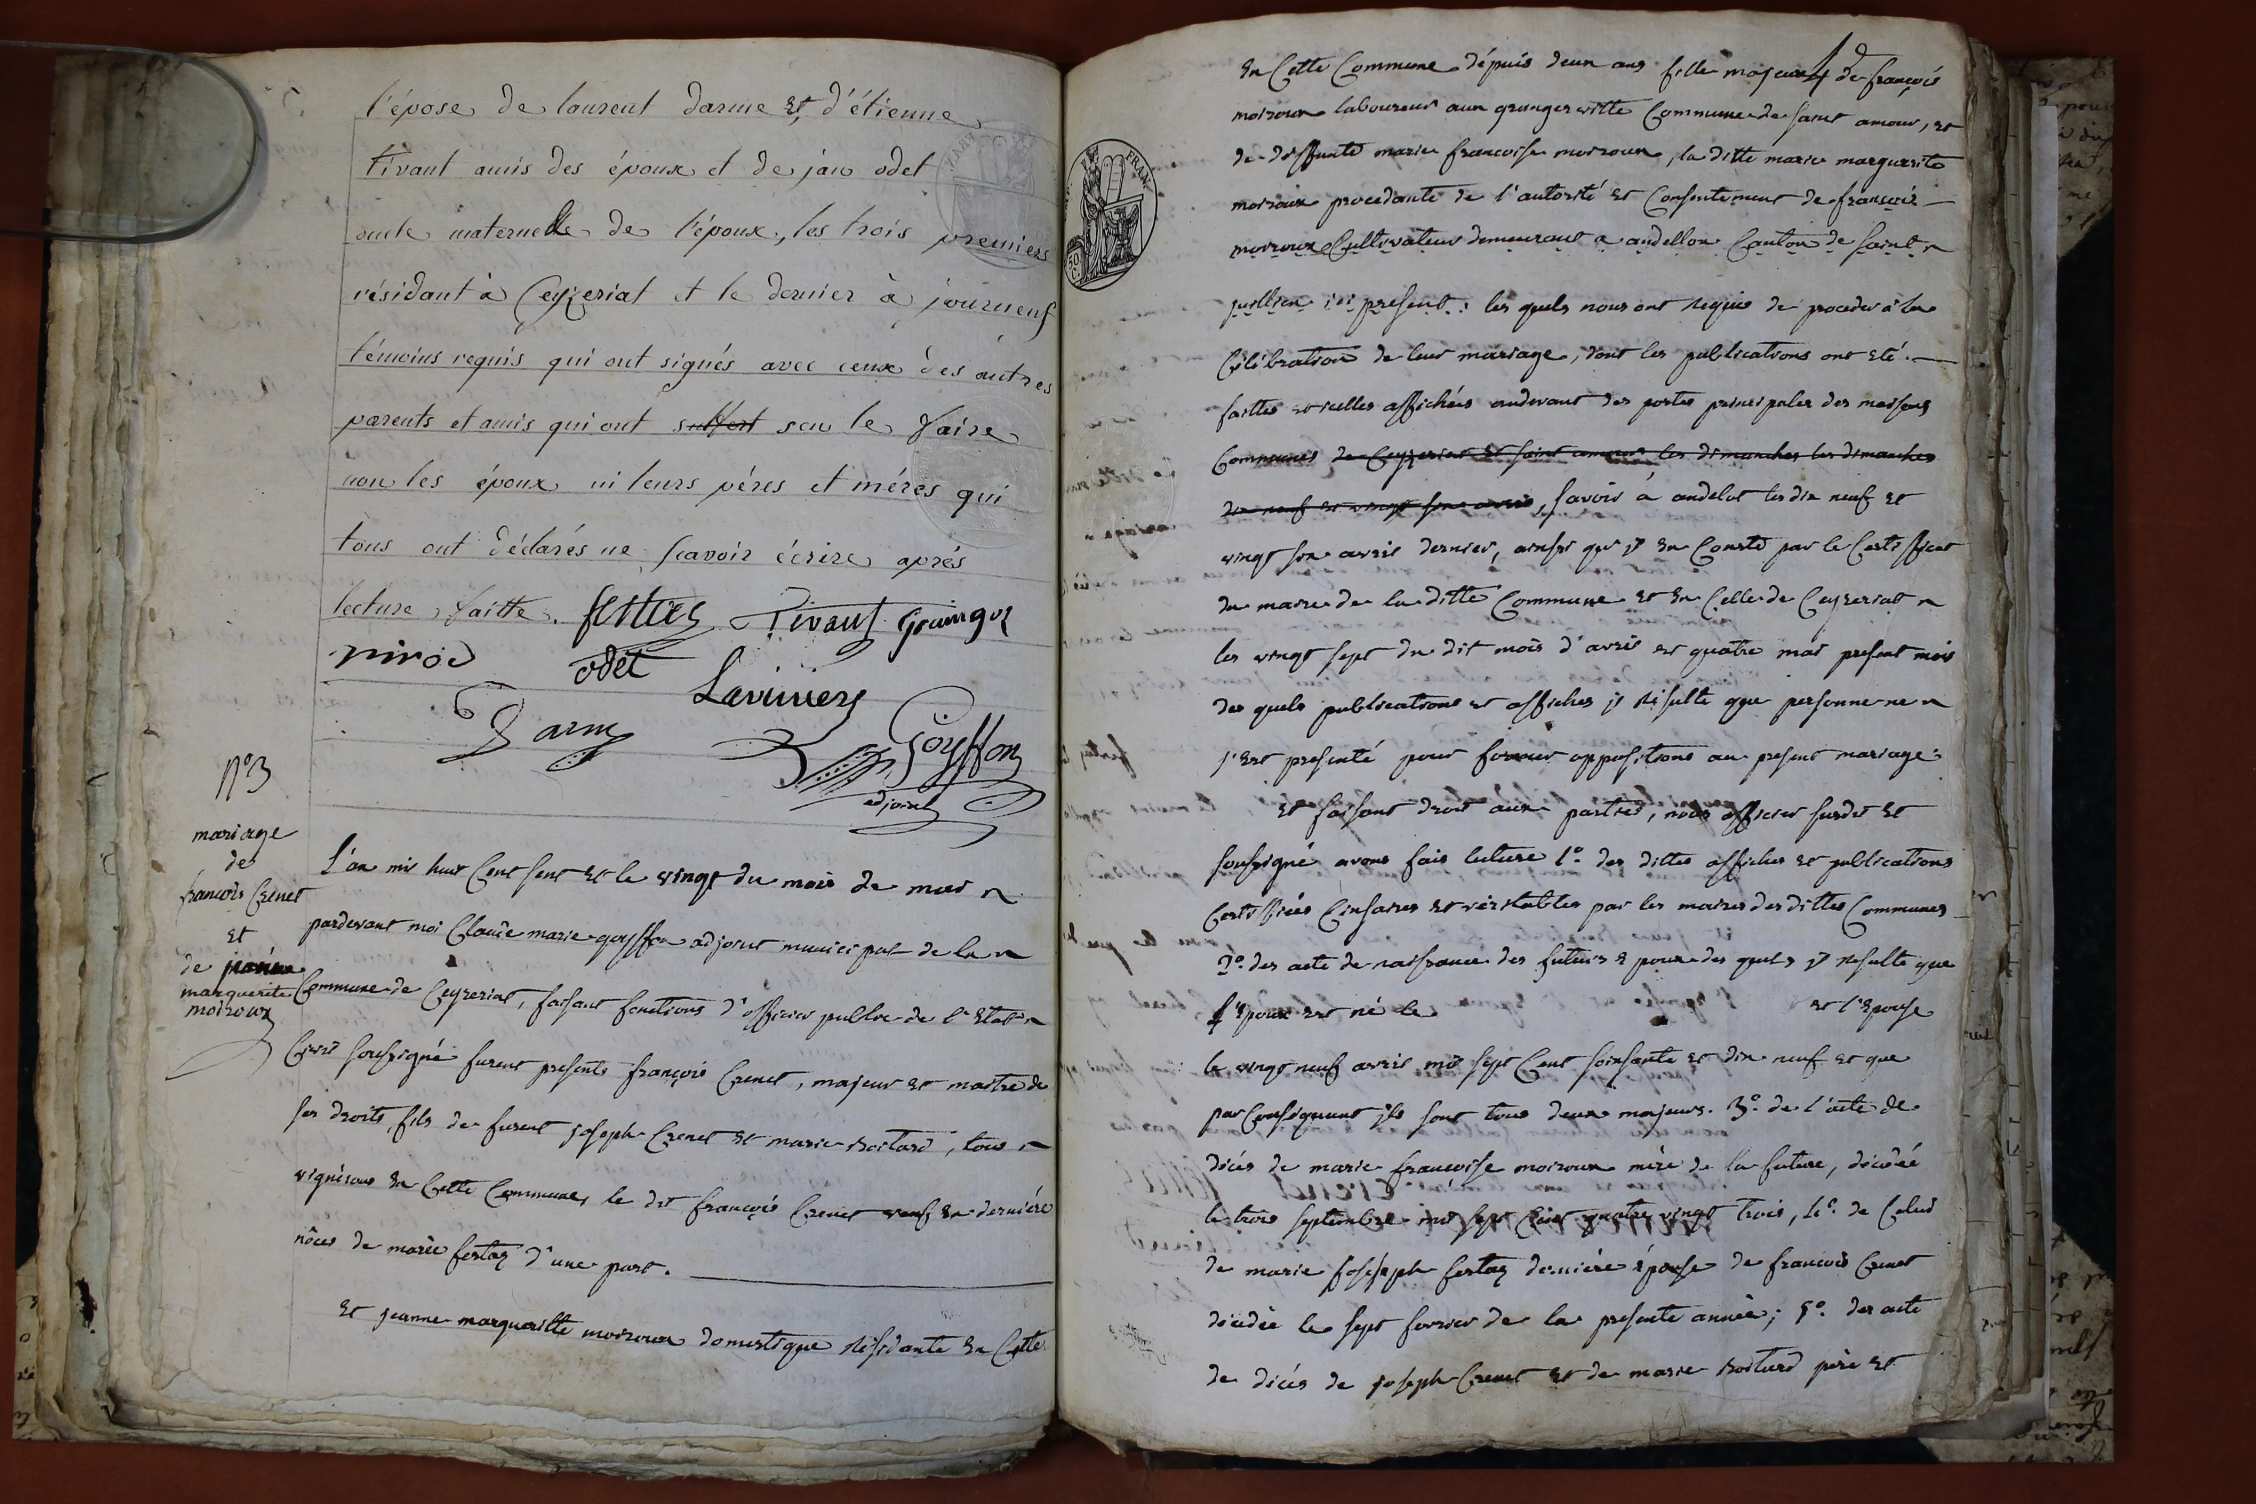 l'épose de laurent darme et d'étienne
tivant amis des époux et de jân odet
oncle maternelle de l'époux, les trois premiers
résidant à Ceyzeriat et le dernier à journens
témoins requis qui ont signés avec ceux des autres
parents et amis qui ont scu le faire
non les époux ni leurs péres et méres qui
tous ont déclarés ne scavoir écrire aprés
lecture faitte.
Tivant Grangez
niröd odet Laviniery
Darme Goyffon
adjoint
N° 3
mariage
de
francois Crenet
et
de
marguerite
moiroux
L'an mil huit Cent sept et le vingt du mois de mai
pardevant moi Claude marie goyffon adjoint municipal de la
Commune de Ceyzeriat, faisant fonctions d'officier public de l'Etat
Civil soussigné furent presents françois Crenet, majeur et maitre de
ses droits, fils de furent joseph Crenet et marie boitard, tous
vignerons en Cette Commune, le dit françois Crenet veuf en derniére
nôces de marie festaz d'une part.
et jeanne margueritte moiroux domestique résidante en Cette
4
en Cette Commune dépuis deux ans fille majeure de françois
moiroux laboureur aux granges Commune de saint amour, et
de déffunte marie francoise moiroux, la ditte marie marguerite
moiroux procedante de l'autorité et Consentement de françois
moiroux Cultivateur demeurant a andellon Canton de saint
jullien ici présent: les quels nous ont requis de proceder à la
Célébration de leur mariage, dont les publications ont eté
faittes et icelles affichées audevant des portes principales des maisons
Communes de Ceyzeriat et saint amour les dimanches les dimanches
dix neuf et vingt six avril, savoir à andelot les dix neuf et
vingt six avril dernier, ainsi qu'il en Conste par le Certifficat
du maire de la ditte Commune et en Celle de Ceyzeriat
les vingt sept du dit mois d'avril et quatre mai présent mois
des quels publications et affiches il résulte que personne ne
s'est presenté pour former oppositions au present mariage:
et faisant droit aux parties, nous officier susdit et
soussigné avons fait lecture 1°. des dittes affiches et publications
Certiffiées Sinsaires et véritables par les maires desdittes Communes
2°. des acte de naissance des futurs époux des quels il résulte que
l'époux est né le et l'épouse
le vingt neuf avril mil sept Cent soixante et dix neuf et que
par Conséquent ils sont tous deux majeurs. 3°. de l'acte de
décés de marie francoise moiroux mére de la future, décedée
le trois septembre mil sept Cent quatre vingt trois, 4°. de Celui
de marie joseph festaz derniére épouse de francois Crenet
décedée le sept fevrier de la présente année; 5°. des acte
de décés de joseph Crenet et de marie boitard pére et